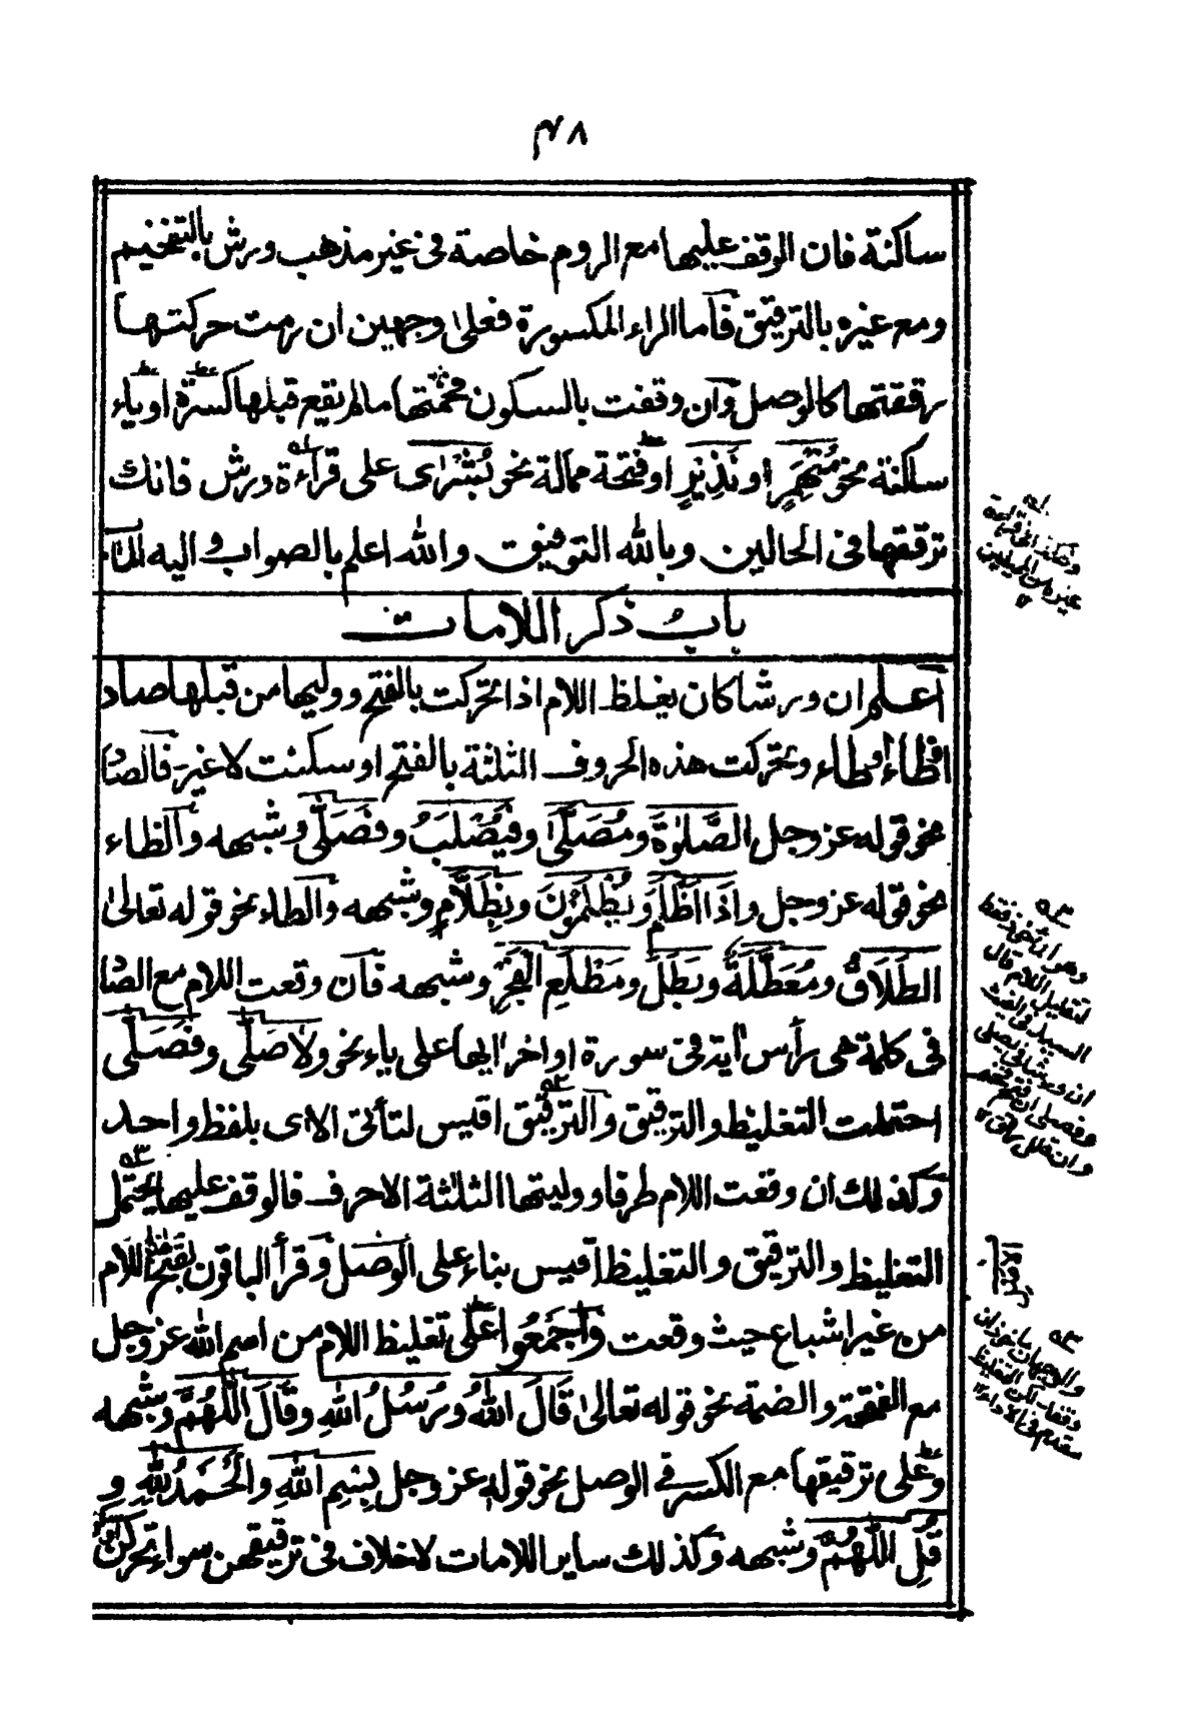 ٤٨
ساكنة فان الوقف عليها مع الروم خاصة فى غير مذهب ورش بالتفخيم
ومع غيره بالترقيق فآما الراء المكسورة فعلى وجهين ان رمت حركتها
رققتها كالوصل وآن وقفت بالسكون فخمتها ما لم يقع قبلها كسرة او ياء
ساكنة نحو مُنْهَمِرٍ او نَذِيْرٍ او فتحة ممالة نحو بُشْرَاى على قراءة ورش فانك
ترققها فى الحالين وبالله التوفيق والله اعلم بالصواب و اليه المآب
باب ذكر اللامات
آعلم ان ورشا كان يغلظ اللام اذا تحركت بالفتح ووليها من قبلها صاد
اوظاء اوطاء وتحركت هذه الحروف الثلثة بالفتح او سكنت لا غير فآلصاد
نحو قوله عز وجل الصَّلٰوةَ ومُصَلًّى وفَيُصْلَبُ وفَصَلّٰى وشبهه وآلظاء
نحو قوله عز وجل واذَا اَظْلَمَ ويُظْلَمُوْنَ وبِظَلَّامٍ وشبهه وآلطاء نحو قوله تعالىٰ
الطَّلَاقُ ومُعَطَّلَةٍ وبَطَلَ ومَطْلَعِ الْفَجْرِ وشبهه فآن وقعت اللام مع الصاد
فى كلمة هى رأس اٰية فى سورة اواخر اٰيها على ياء نحو ولَا صَلّٰى وفَصَلّٰى
احتملت التغليظ والترقيق وآلترقيق اقيس لتأتى الاى بلفظ واحد
وكذلك ان وقعت اللام طرفا ووليتها الثلثة الاحرف فالوقف عليها يحتمل
التغليظ والترقيق والتغليظ آقيس بناء على الوصل وقرأ الباقون بفتح اللام
من غير اشباع حيث وقعت وآجمعوا على تغليظ اللام من اسم الله عز وجل
مع الفتحة والضمة نحو قوله تعالىٰ قَالَ اللّٰهُ ورُسُلُ اللّٰهِ وقَالَ اللّٰهُمَّ وشبهه
وعلى ترقيقها مع الكسر فى الوصل نحو قوله عز وجل بِسْمِ اللّٰهِ والْحَمْدُ لِلّٰهِ و
قُلِ اللّٰهُمَّ وشبهه وكذلك ساير اللامات لا خلاف فى ترقيقهن سواء تحركن
وهو المأخوذ فقط
لتقليل اللام قال
السيد فى الغيث
والوجهان ماخوذان
وقفا لكن التغليظ
مقدم فى الاداء